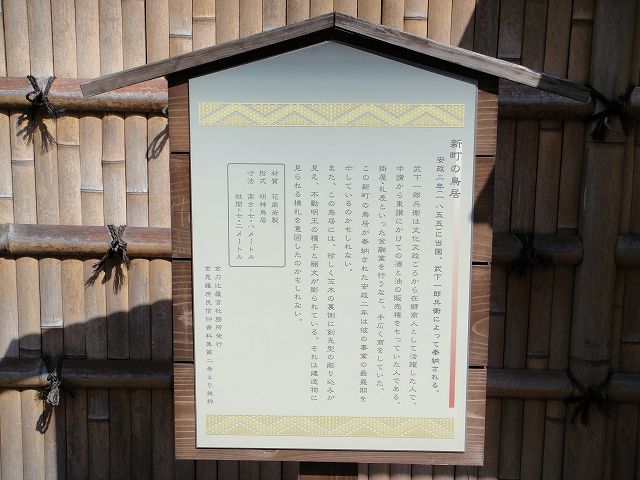 新町の鳥居
安政二年(一八五五)に当国、武下一郎兵衛によって奉納される。
武下一郎兵衛は文化文政ごろから在郷商人として活躍した人で、
中讃から東讃にかけての酒と油の販売権をもっていた人である。
掛屋・札差といった金融業を行うなど、手広く商をしていた。
この新町の鳥居が奉納された安政二年は彼の事業の最盛期を
示しているのかもしれない。
また、この鳥居には、珍しく笠木の裏側に剣先型の彫り込みが
見え、不動明王の種子と願文が彫られている。それは建造物に
見られる棟札を意図したのかもしれない。
材質 花崗岩製
形式 明神鳥居
寸法 高さ七・八メートル
柱間七・二メートル
金刀比羅宮社務所発行
金毘羅庶民信仰資料集第二巻より抜粋